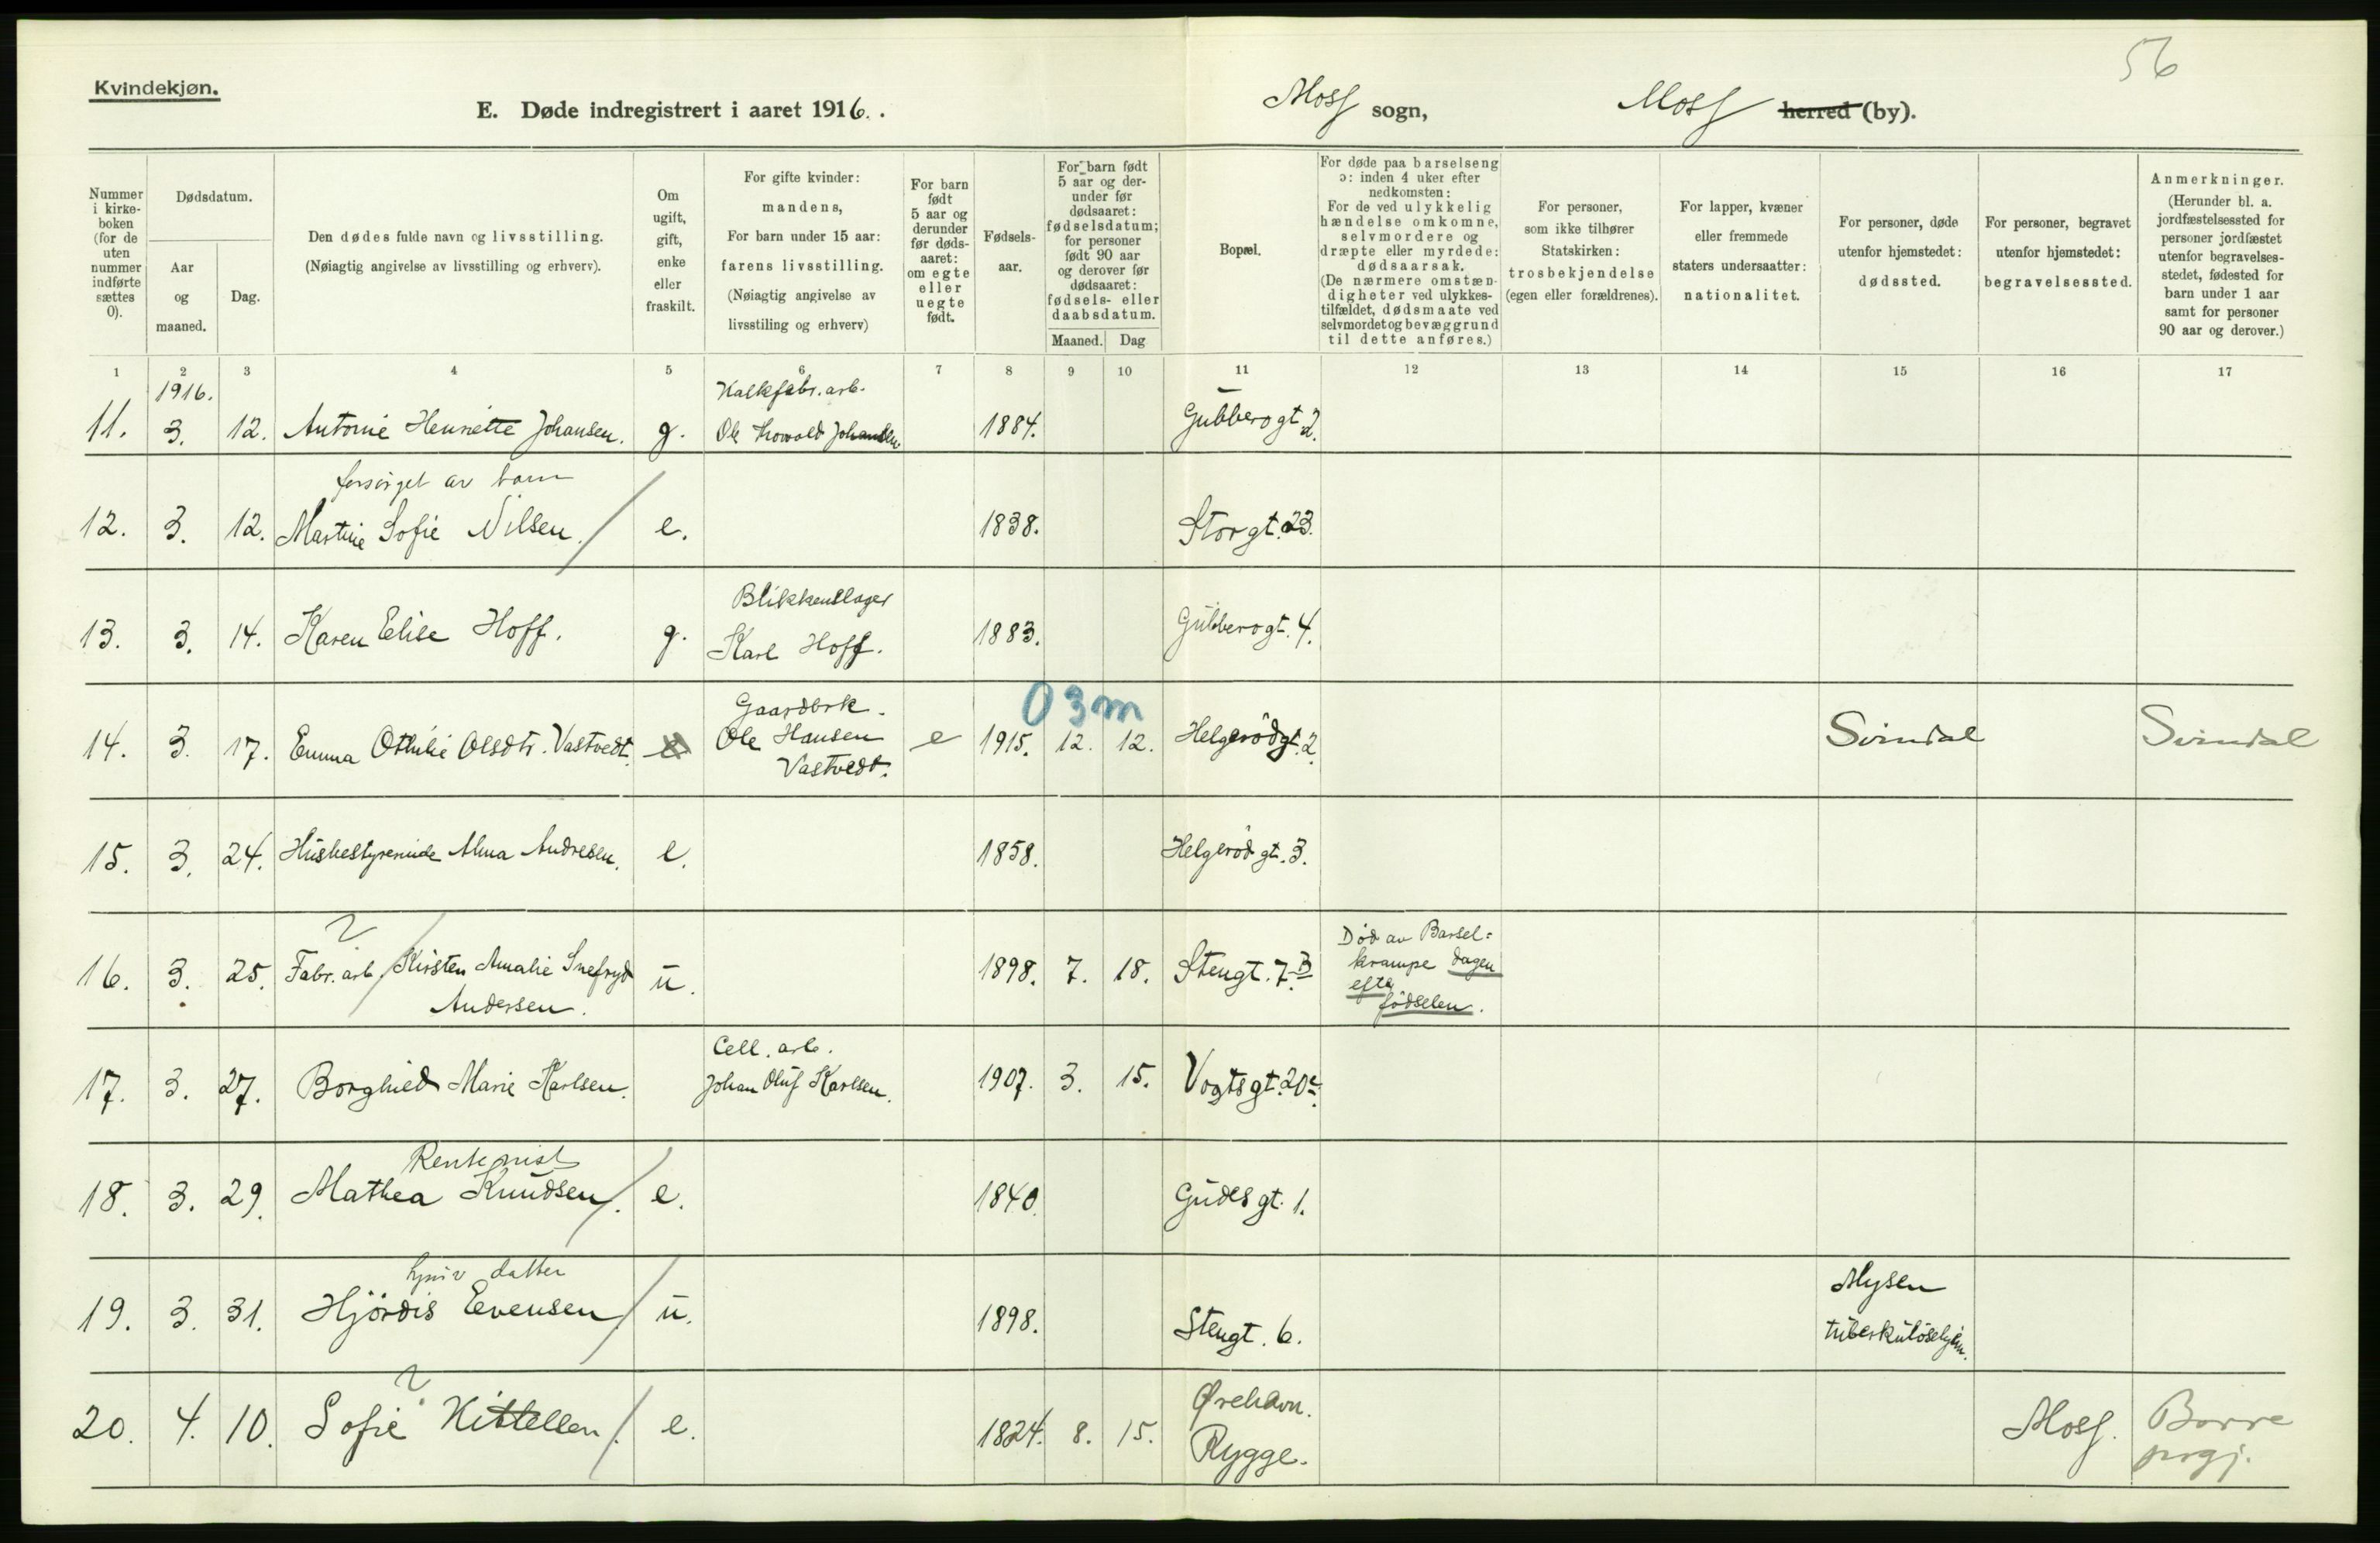 56
Kvindekjøn.
E. Døde indregistrert i aaret 1916. . Moss sogn, Moss herred (by).
Nummer
i kirke-
boken
(for de
uten
nummer
indførte
sættes
0).
Dødsdatum.
Aar
og
maaned.
Dag.
Den dødes fulde navn og livsstilling.
(Nøiagtig angivelse av livsstilling og erhverv).
Om
ugift,
gift,
enke
eller
fraskilt.
For gifte kvinder:
mandens,
For barn under 15 aar:
farens livsstilling.
(Nøiagtig angivelse av
livsstiling og erhverv)
For barn
født
5 aar og
derunder
før døds-
aaret:
om egte
eller
uegte
født.
Fødsels-
aar.
For barn født
5 aar og der-
under før
dødsaaret:
fødselsdatum;
for personer
født 90 aar
og derover før
dødsaaret:
fødsels- eller
daabsdatum.
Maaned. Dag
Bopæl.
For døde paa barselseng
ɔ: inden 4 uker efter
nedkomsten:
For de ved ulykkelig
hændelse omkomne,
selvmordere og
dræpte eller myrdede:
dødsaarsak.
(De nærmere omstæn-
digheter ved ulykkes-
tilfældet, dødsmaate ved
selvmordet og bevæggrund
til dette anføres.)
For personer,
som ikke tilhører
Statskirken:
trosbekjendelse
(egen eller forældrenes).
For lapper, kvæner
eller fremmede
staters undersaatter:
nationalitet.
For personer, døde
utenfor hjemstedet:
dødssted.
For personer, begravet
utenfor hjemstedet:
begravelsessted.
Anmerkninger.
(Herunder bl. a.
jordfæstelsessted for
personer jordfæstet
utenfor begravelses-
stedet, fødested for
barn under 1 aar
samt for personer
90 aar og derover.)
1 2 3 4 5 6 7 8 9 10 11 12 13 14 15 16 17
1916. Kalkfabr. arb.
11. 3. 12. Antonie Henriette Johansen. g. Ole Thorvald Johansen. 1884. Gubberogt 2.
forsørget av barn
12. 3. 12. Martine Sofie Nilsen. e. 1838. Storgt. 23.
Blikkenslager
13. 3. 14. Karen Elise Hoff. g. Karl Hoff. 1883. Gubberogt. 4.
Gaardbrk. 0 3 m
14. 3. 17. Emma Othilie Olsdtr. Vastvedt. Ole Hansen e 1915. 12. 12. Helgerödgt. 2. Svindal Svindal
Vastvedt.
15. 3. 24. Husbestyrerinde Alma Andresen. e. 1858. Helgeröd gt. 3.
?
16. 3. 25. Fabr. arb. Kirsten Amalie Snefryd u. 1898. 7. 18. Stengt. 7.B Död av Barsel-
Andersen. krampe dagen
efter
födselen.
Cell. arb.
17. 3. 27. Borghild Marie Karlsen. Johan Oluf Karlsen. 1907. 3. 15. Vogtsgt. 20c.
Rentenist
18. 3. 29. Mathea Knudsen. e. 1840. Gudes gt. 1.
datter
19. 3. 31. Hjördis Evensen u. 1898. Stengt. 6. Mysen
tuberkulösehjem.
?
20. 4. 10. Sofie Kittelsen. e. 1824. 8. 15. Ørehavn. Moss. Borre
Rygge. prgj.